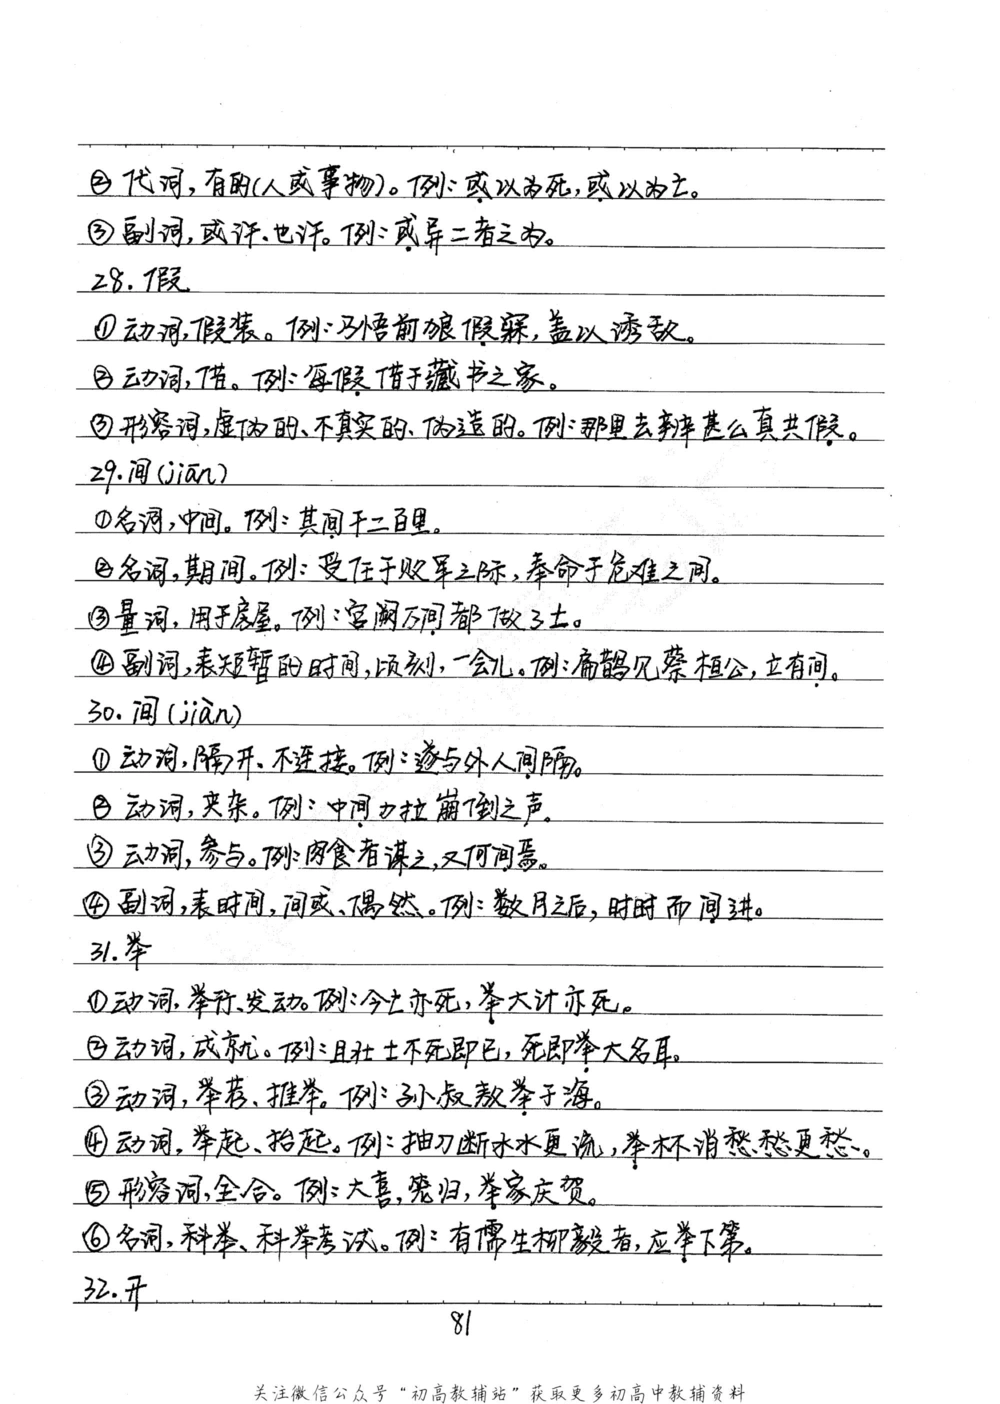 ②代词，有的(人或事物)。例：或以为死，或以为亡。
③副词，或许、也许。例：或异二者之为。
28.假
①动词，假装。例：乃悟前狼假寐，盖以诱敌。
②动词，借。例：每假借于藏书之家。
③形容词，虚伪的、不真实的、伪造的。例：那里去辨甚么真共假。
29.间(jiān)
①名词，中间。例：其间千二百里。
②名词，期间。例：受任于败军之际，奉命于危难之间。
③量词，用于房屋。例：宫阙万间都做了土。
④副词，表短暂的时间，顷刻，一会儿。例：扁鹊见蔡桓公，立有间。
30.间(jiàn)
①动词，隔开、不连接。例：遂与外人间隔。
②动词，夹杂。例：中间力拉崩倒之声。
③动词，参与。例：肉食者谋之，又何间焉。
④副词，表时间，间或、偶然。例：数月之后，时时而间进。
31.举
①动词，举行、发动。例：今亡亦死，举大计亦死。
②动词，成就。例：且壮士不死即已，死即举大名耳。
③动词，举荐、推举。例：孙叔敖举于海。
④动词，举起、抬起。例：抽刀断水水更流，举杯消愁愁更愁。
⑤形容词，全、合。例：大喜，笼归，举家庆贺。
⑥名词，科举、科举考试。例：有儒生柳毅者，应举下第。
32.开
81
关注微信公众号“初高教辅站”获取更多初高中教辅资料